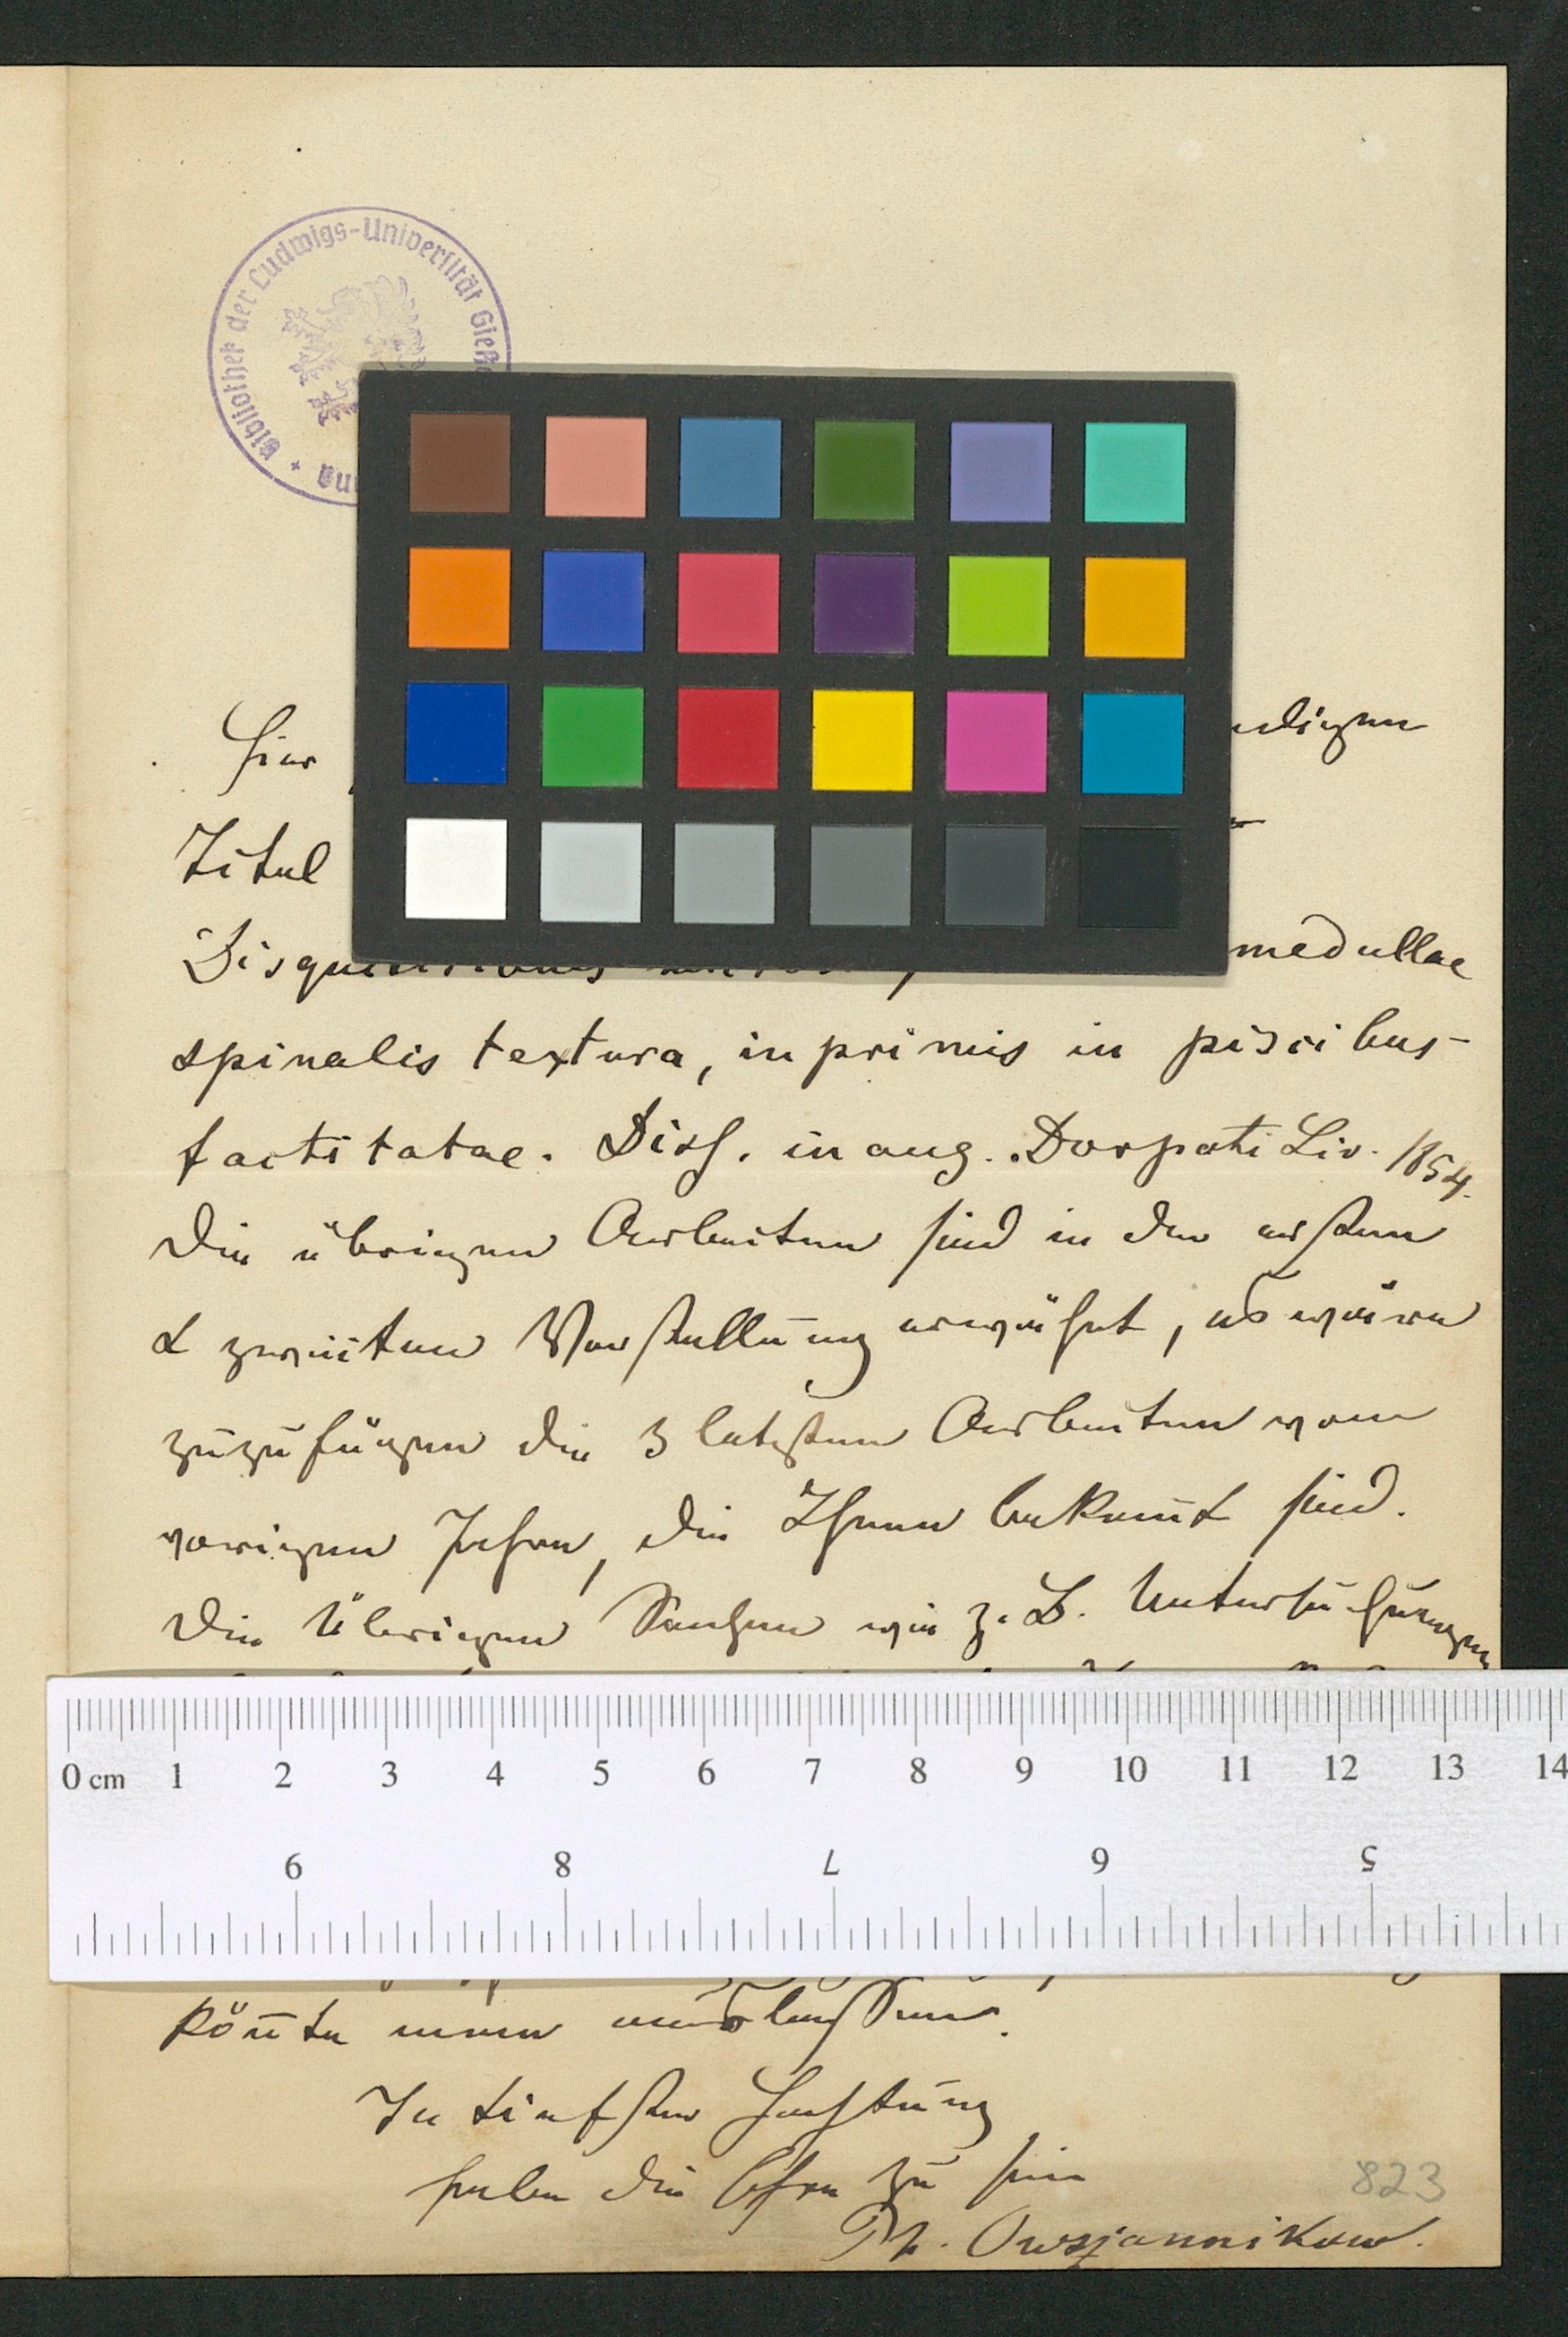 Bibliothek der Ludwigs-Universität Gieß
Hier
Titel
medullae
spinalis textura, inprimis in piscibus
factitatae. Diss. inaug. Dorpati Liv. 1854.
Die übrigen Arbeiten sind in der ersten
& zweiten Vorstellung erwähnt, es wäre
zuzufügen die 3 letzten Arbeiten vom
vorigen Jahre, die Ihnen bekannt sind.
Die Übrigen Sachen wie z. B. Untersuchungen
0 cm 1 2 3 4 5 6 7 8 9 10 11 12 13 14
9 8 7 6 5
könnte man auslassen.
In tiefster Hochachtung
habe die Ehre zu sein
823
Ph. Owsjannikow.